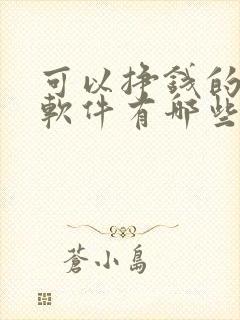 可以挣錢的
軟件有哪些
蒼小島